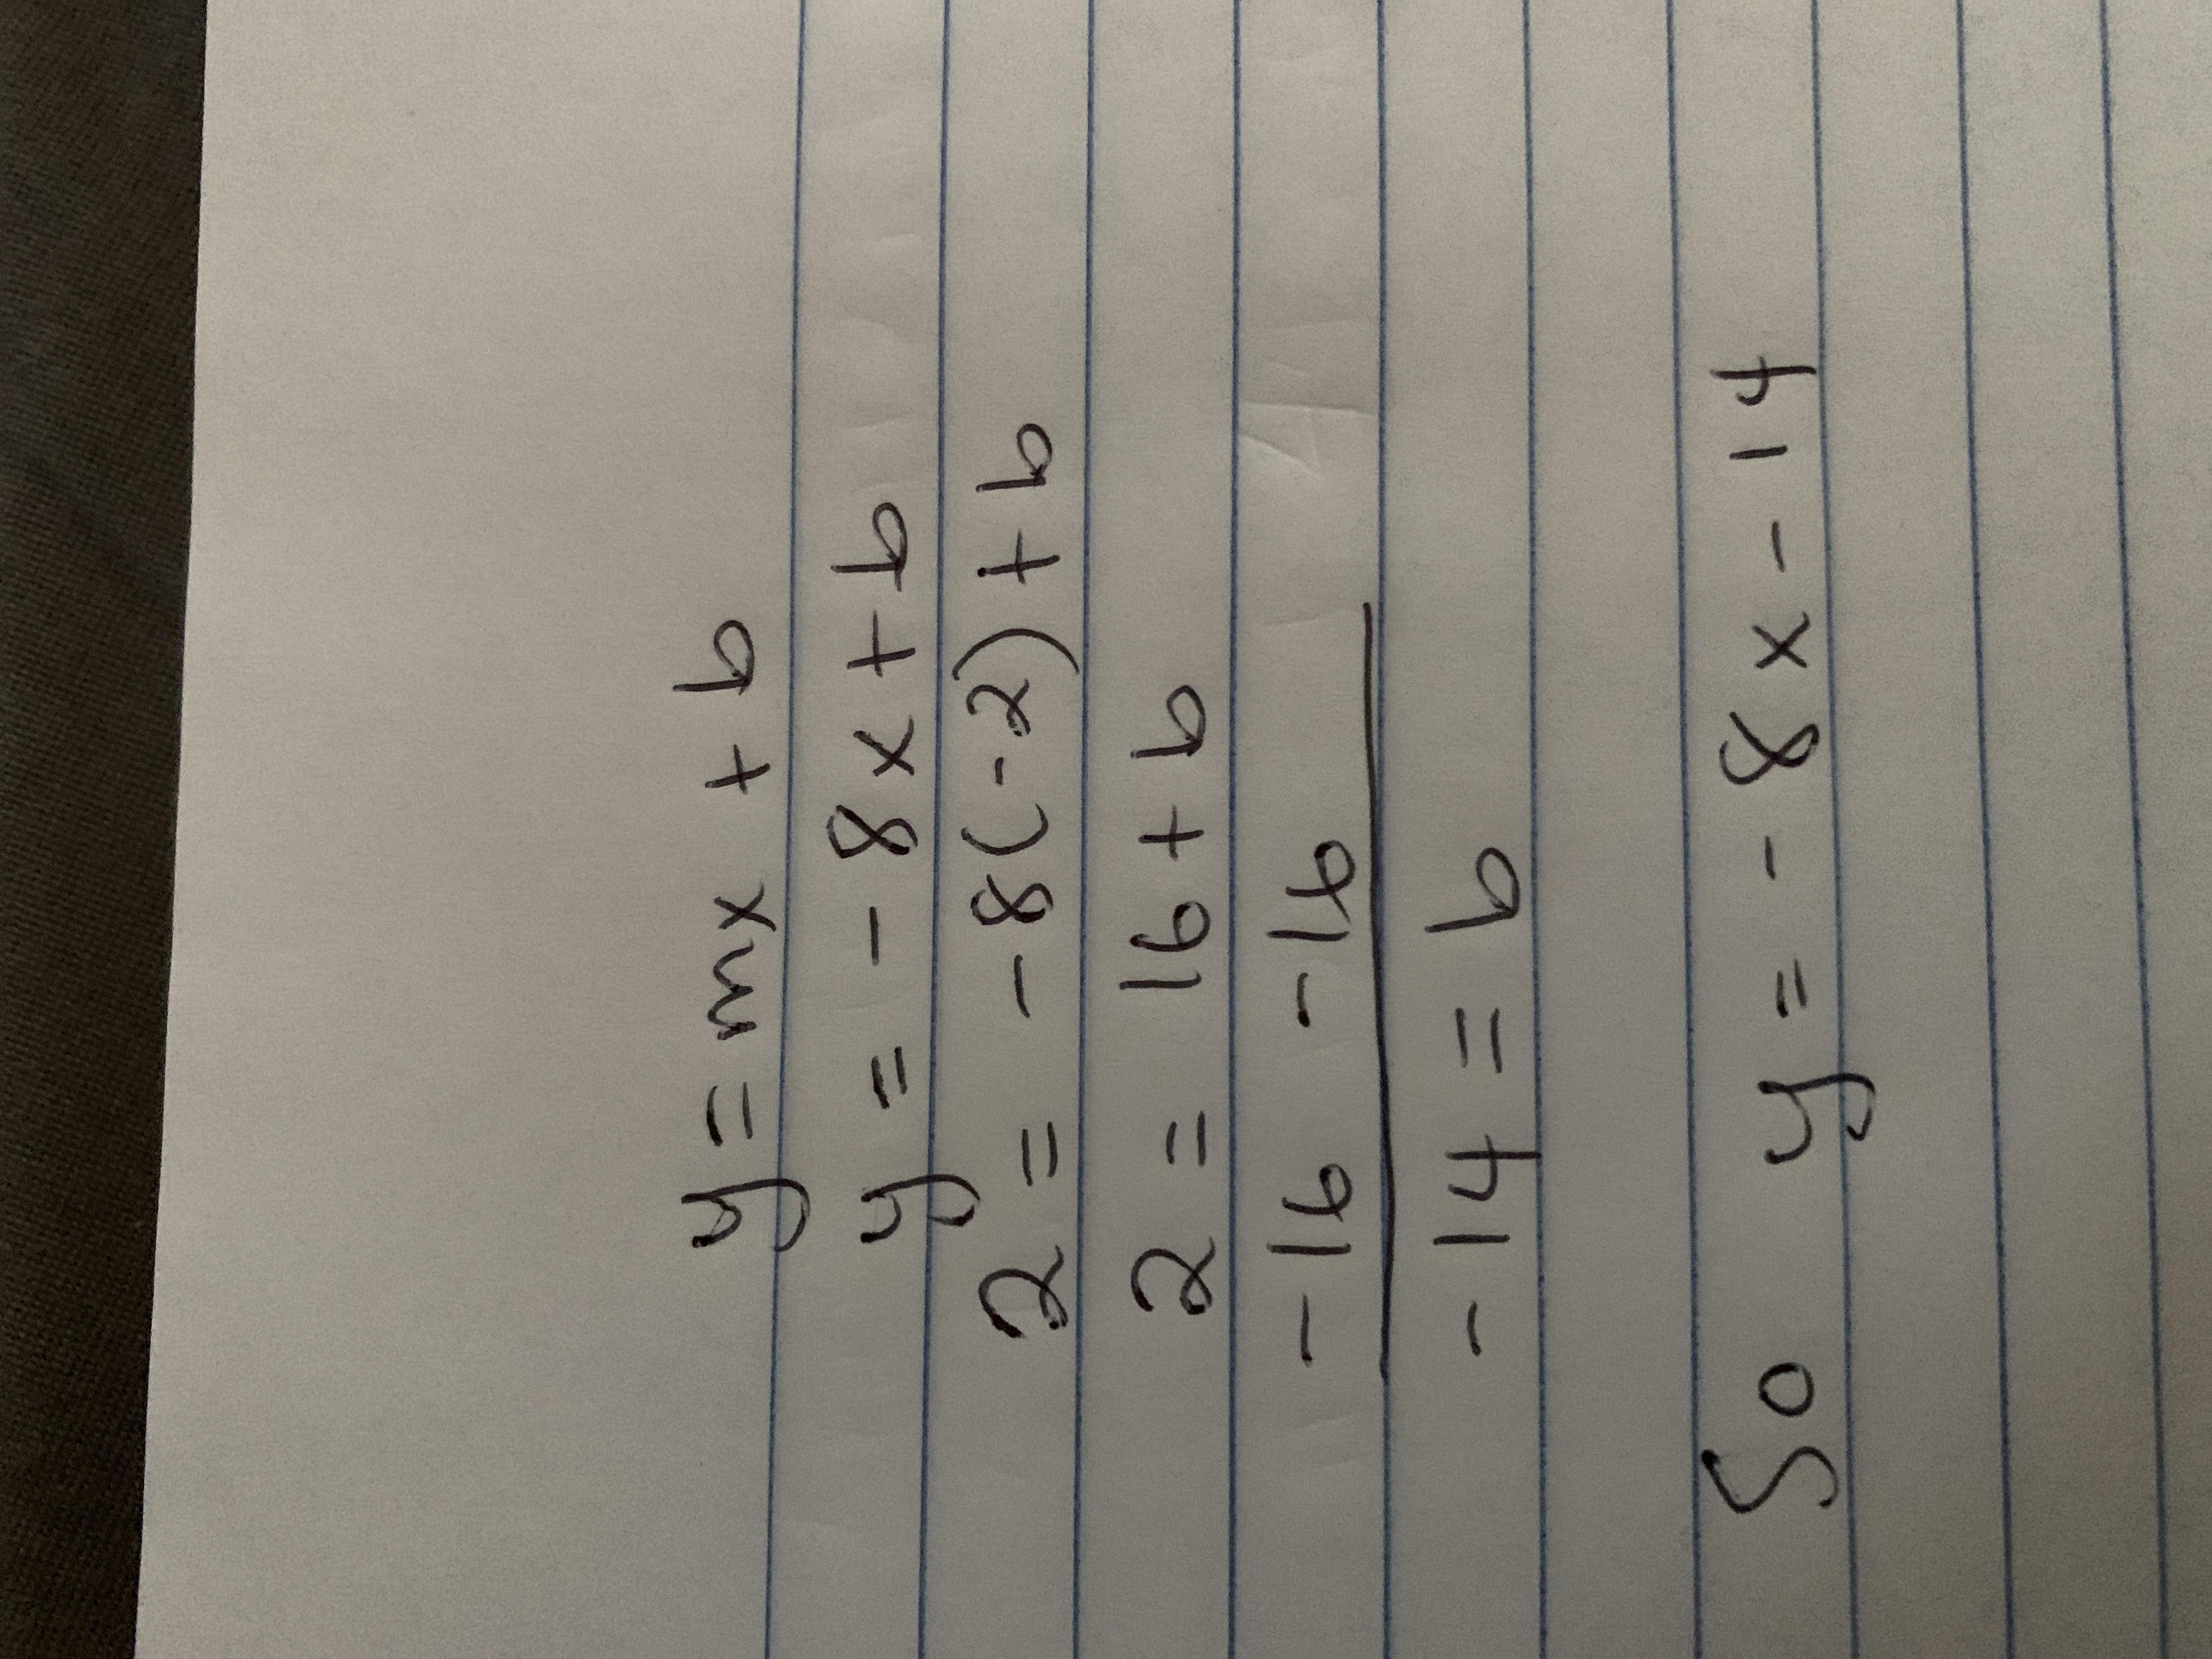 y = mx + b
y = - 8x + b
2 = - 8(-2) + b
2 = 16 + b
-16 -16
-14 = b
So y = - 8x - 14